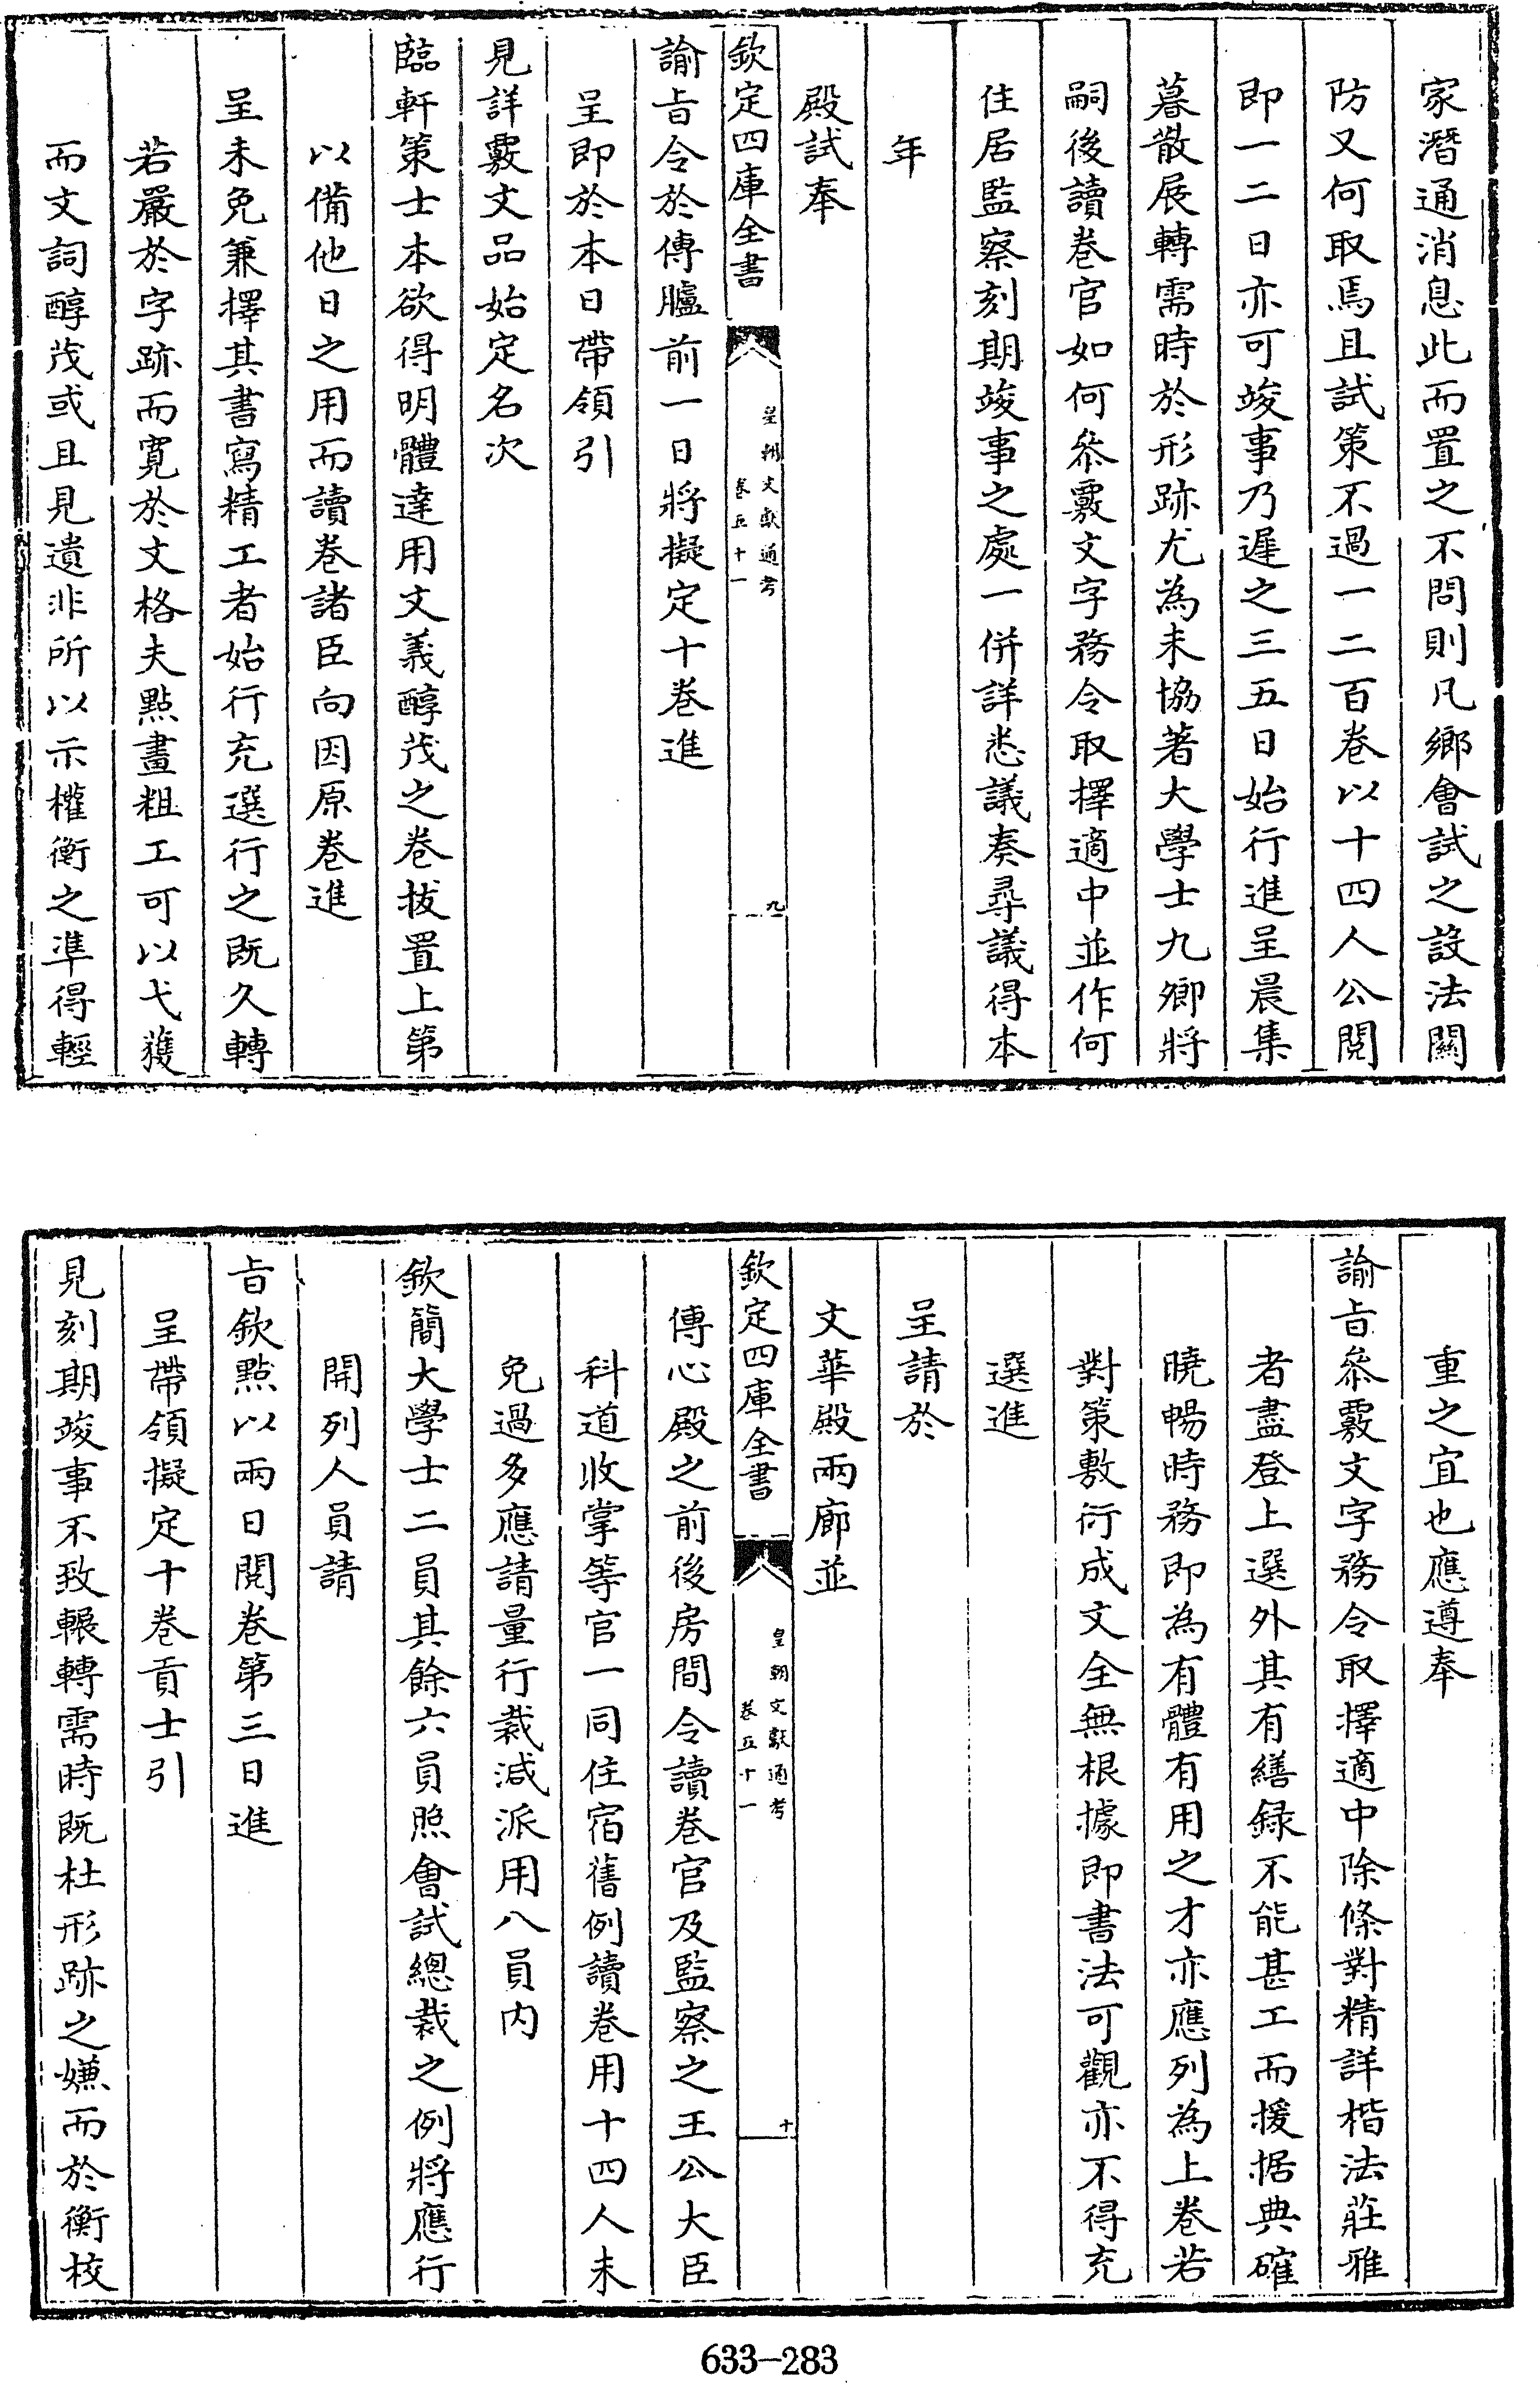 家潛通消息此而置之不問則凡鄉會試之設法關
防又何取焉且試策不過一二百卷以十四人公閱
即一二日亦可竣事乃遲之三五日始行進呈晨集
暮散展轉需時於形跡尤為未協著大學士九卿將
嗣後讀卷官如何叅覈文字務令取擇適中並作何
住居監察刻期竣事之處一併詳悉議奏尋議得本
年
殿試奉
欽定四庫全書
皇朝文獻通考
卷五十一
九
諭旨令於傳臚前一日將擬定十卷進
呈即於本日帶領引
見詳覈文品始定名次
臨軒策士本欲得明體達用文義醇茂之卷拔置上第
以備他日之用而讀卷諸臣向因原卷進
呈未免兼擇其書寫精工者始行充選行之既久轉
若嚴於字跡而寛於文格夫點畫粗工可以弋獲
而文詞醇茂或且見遺非所以示權衡之準得輕
重之宜也應遵奉
諭旨叅覈文字務令取擇適中除條對精詳楷法莊雅
者盡登上選外其有繕録不能甚工而援据典確
曉暢時務即為有體有用之才亦應列為上卷若
對策敷衍成文全無根據即書法可觀亦不得充
選進
呈請於
文華殿兩廊並
欽定四庫全書
皇朝文獻通考
卷五十一
十
傳心殿之前後房間令讀卷官及監察之王公大臣
科道收掌等官一同住宿舊例讀卷用十四人未
免過多應請量行裁減派用八員内
欽簡大學士二員其餘六員照會試總裁之例將應行
開列人員請
旨欽點以兩日閱卷第三日進
呈帶領擬定十卷貢士引
見刻期竣事不致輾轉需時既杜形跡之嫌而於衡校
633-283